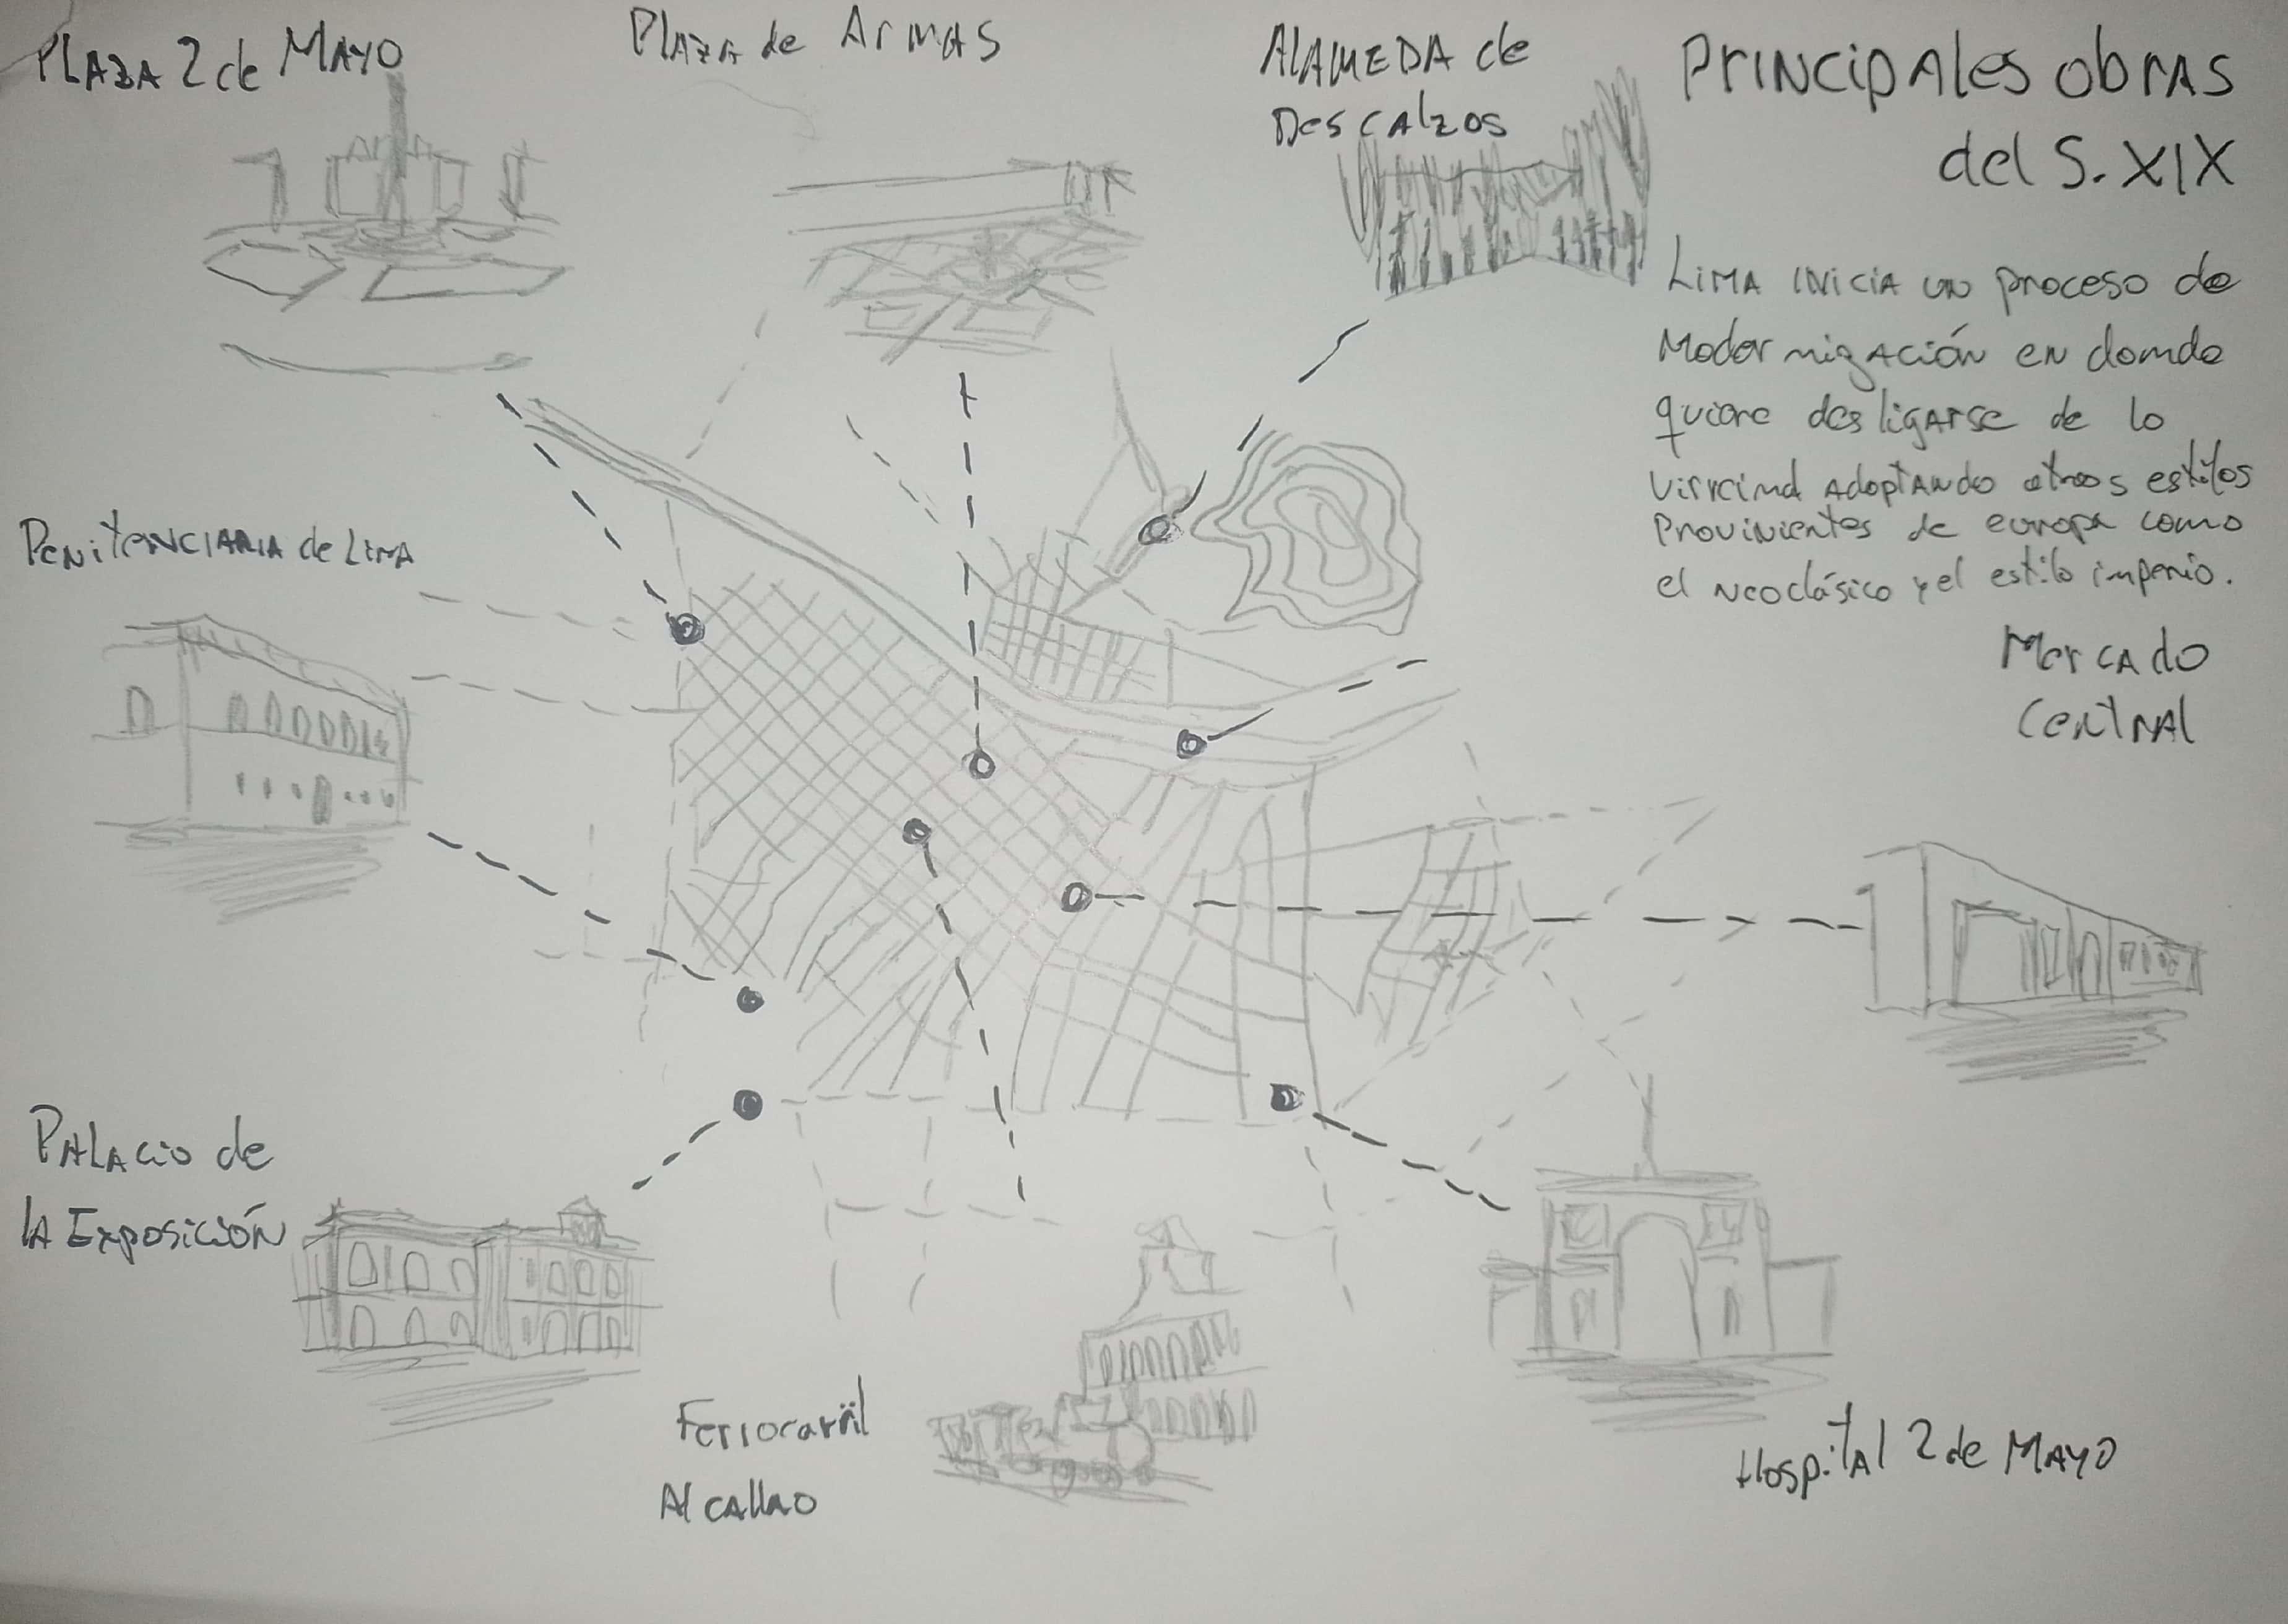 PLAZA 2 de MAYO
PLAZA de ArmAS
ALAMEDA de
DescAlzos
PrINCipAles obrAS
del S. XIX
LIMA INICIA UN proceso de
ModernizACIÓN en donde
quiere desligArse de lo
virreinal AdoptANdo otros estilos
Provinientes de europa como
el neoclásico y el estilo imperio.
PeNiTeNCIARIA de LIMA
MerCAdo
CeNTrAl
PALAcio de
lA ExposiciÓN
Ferrocarril
Al CAllao
HospiTAl 2 de MAYO